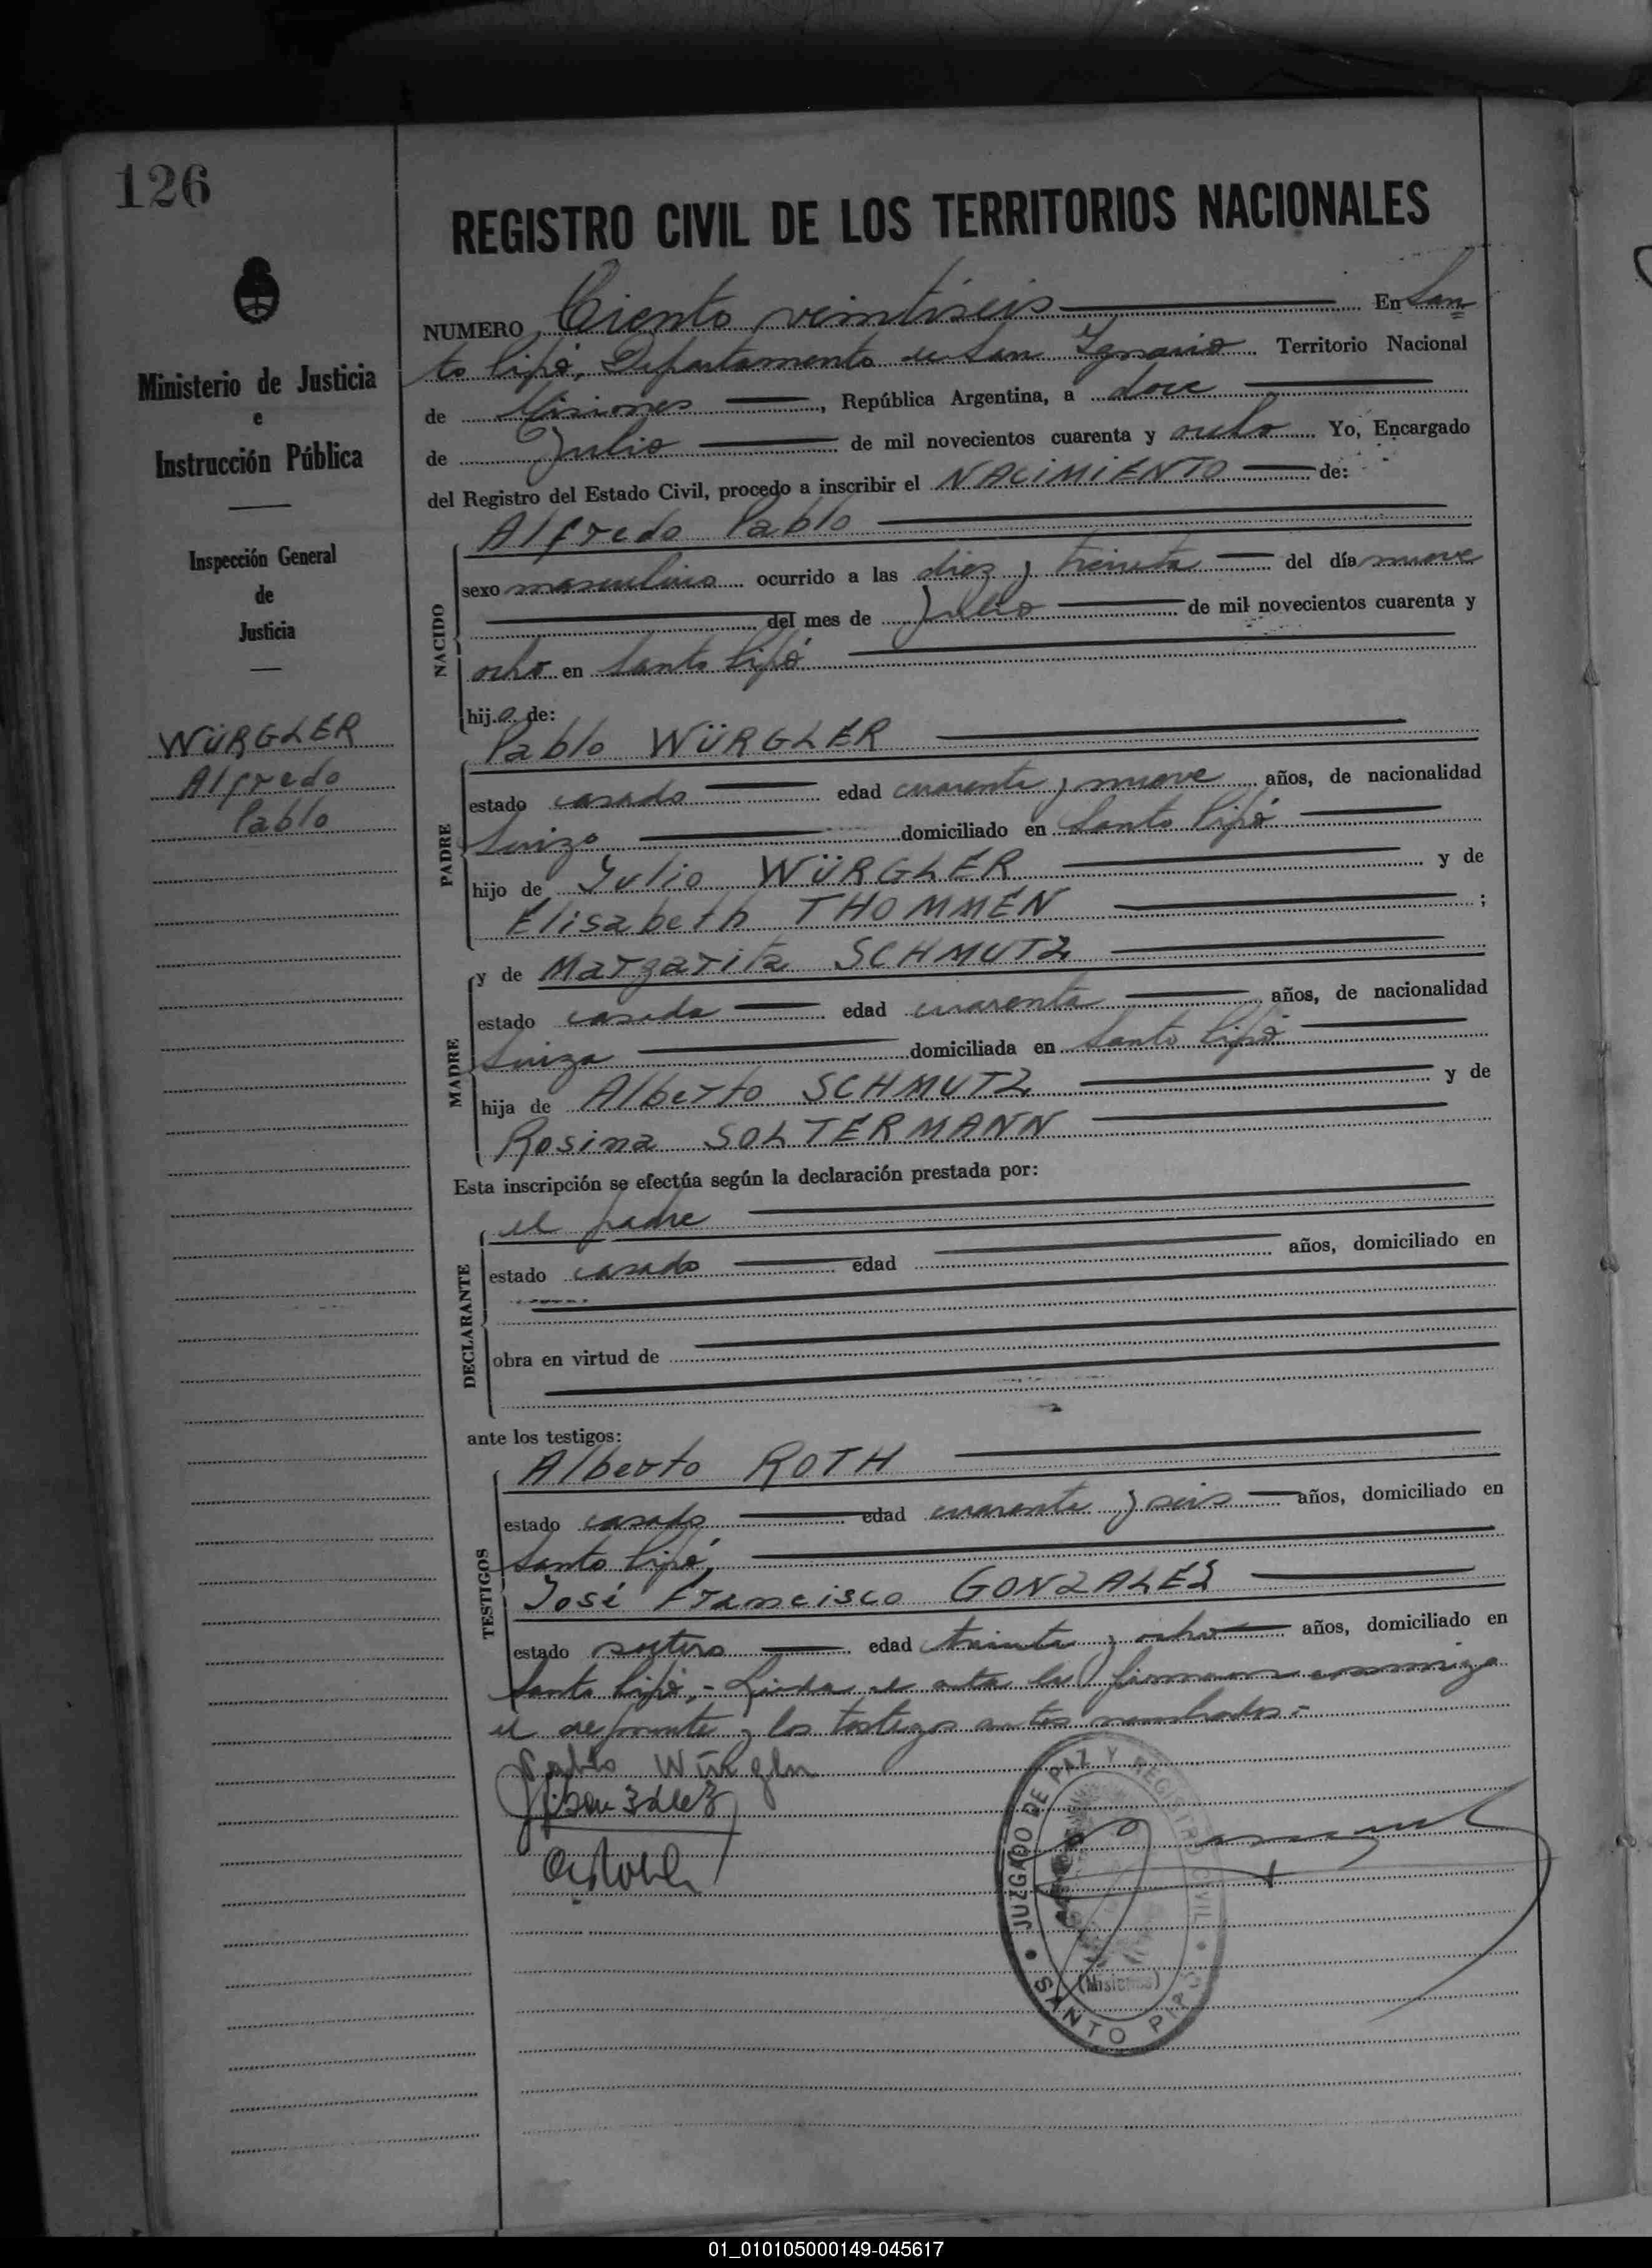 126
REGISTRO CIVIL DE LOS TERRITORIOS NACIONALES
Ministerio de Justicia
e
Instrucción Pública
Inspección General
de
Justicia
WÜRGLER
Alfredo
Pablo
NUMERO Ciento veintiseis En San
to Pipó, Departamento de San Ignacio Territorio Nacional
de Misiones, República Argentina, a doce
de Julio de mil novecientos cuarenta y ocho Yo, Encargado
del Registro del Estado Civil, procedo a inscribir el NACIMIENTO de:
NACIDO
Alfredo Pablo
sexo masculino ocurrido a las diez y treinta del día nueve
del mes de Julio de mil novecientos cuarenta y
ocho en Santo Pipó
hijo de:
PADRE
Pablo WÜRGLER
estado casado edad cuarenta y nueve años, de nacionalidad
Suizo domiciliado en Santo Pipó
hijo de Julio WÜRGLER y de
Elisabeth THOMMEN ;
MADRE
y de Margarita SCHMUTZ
estado casada edad cuarenta años, de nacionalidad
Suiza domiciliada en Santo Pipó
hija de Alberto SCHMUTZ y de
Rosina SOLTERMANN
Esta inscripción se efectúa según la declaración prestada por:
DECLARANTE
el padre
estado casado edad años, domiciliado en
obra en virtud de
ante los testigos:
TESTIGOS
Alberto ROTH
estado casado edad cuarenta y seis años, domiciliado en
Santo Pipó,
José Francisco GONZALEZ
estado soltero edad treinta y ocho años, domiciliado en
Santo Pipó,- Leida el acta la firmaron conmigo
el deponente y los testigos antes nombrados.-
Pablo Würgler
JUZGADO DE PAZ Y REGISTRO CIVIL
(Misiones)
SANTO PIPÓ
01_010105000149-045617